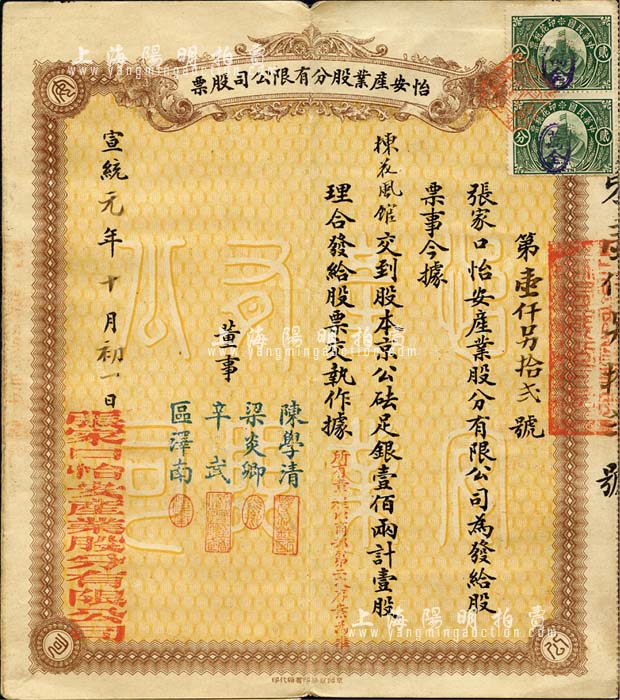 怡安產業股分有限公司股票
第壹仟另拾弍號
張家口怡安產業股分有限公司為發給股
票事今據
棟花風館交到股本京公砝足銀壹佰兩計壹股
理合發給股票交執作據
董事
陳學清
梁炎卿
辛武
區澤南
宣統元年十月初一日
張家口怡安產業股分有限公司
號
上海陽明拍賣
www.yangmingauction.com
上海陽明拍賣
www.yangmingauction.com
上海陽明拍賣
www.yangmingauction.com